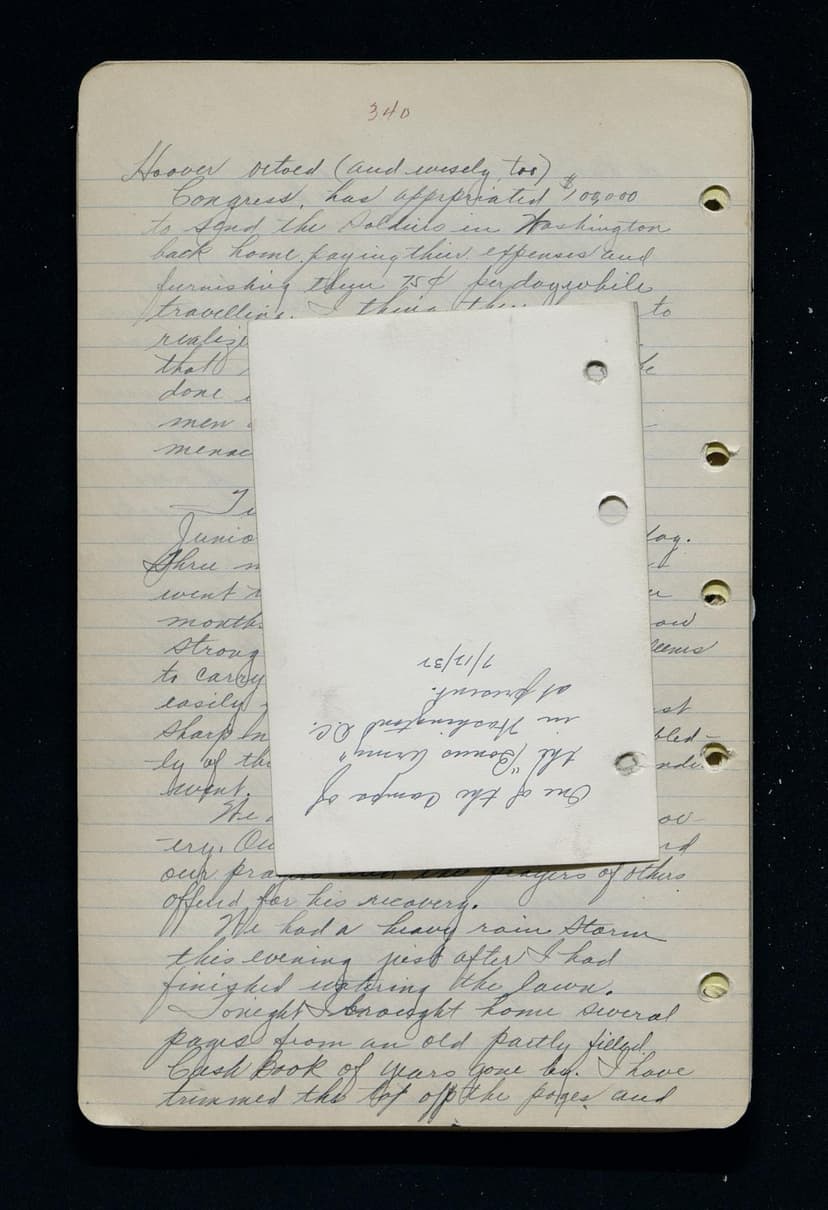 340
Hoover vetoed (and wisely, too)
Congress, has appropriated $100,000
to send the soldiers in Washington
back home, paying their expenses and
furnishing them 75¢ per day while
travelling. I to
realize
that
done
men
menac
Junio day.
Three m
went
month
strong seems
to carry
easily st
sharp
ly of the
went.
We
ery. Ou
our prayers and prayers of others
offered for his recovery.
We had a heavy rain storm
this evening just after I had
finished watering the lawn.
Tonight I brought home several
pages from an old partly filled
Cash Book of years gone by. I have
trimmed the top off the pages and
One of the Camps of
the "Bonus Army"
in Washington D.C.
at present.
7/12/32